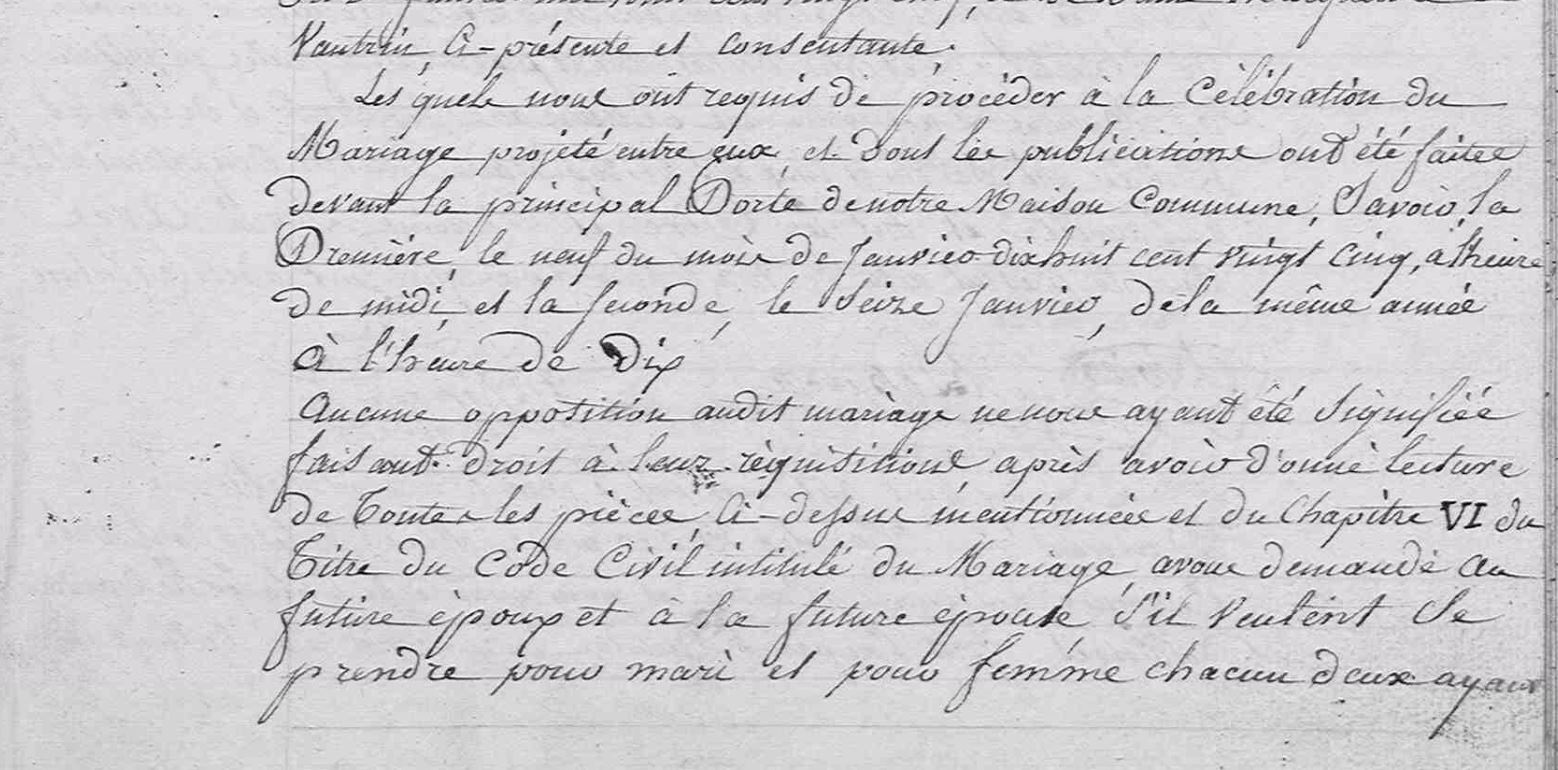 Vautrin, Ci-présente et consentante;
Les quels nous ont requis de procéder à la Célébration du
Mariage projeté entre eux, et dont les publications ont été faites
devant la principal Porte de notre Maison Commune, Savoir, la
Première, le neuf du mois de Janvier dix huit cent vingt cinq, à l'heure
de midi, et la seconde, le Seize Janvier, de la même année
à l'heure de Dix
Aucune opposition audit mariage ne nous ayant été Signifiée
faisant droit à leur réquisitions, après avoir donné lecture
de Toutes les pièces, Ci-dessus mentionnées et du Chapitre VI du
Titre du Code Civil intitulé du Mariage, avons demandé au
future époux et à la future épouse S'il veulent Se
prendre pour mari et pour femme chacun deux ayant